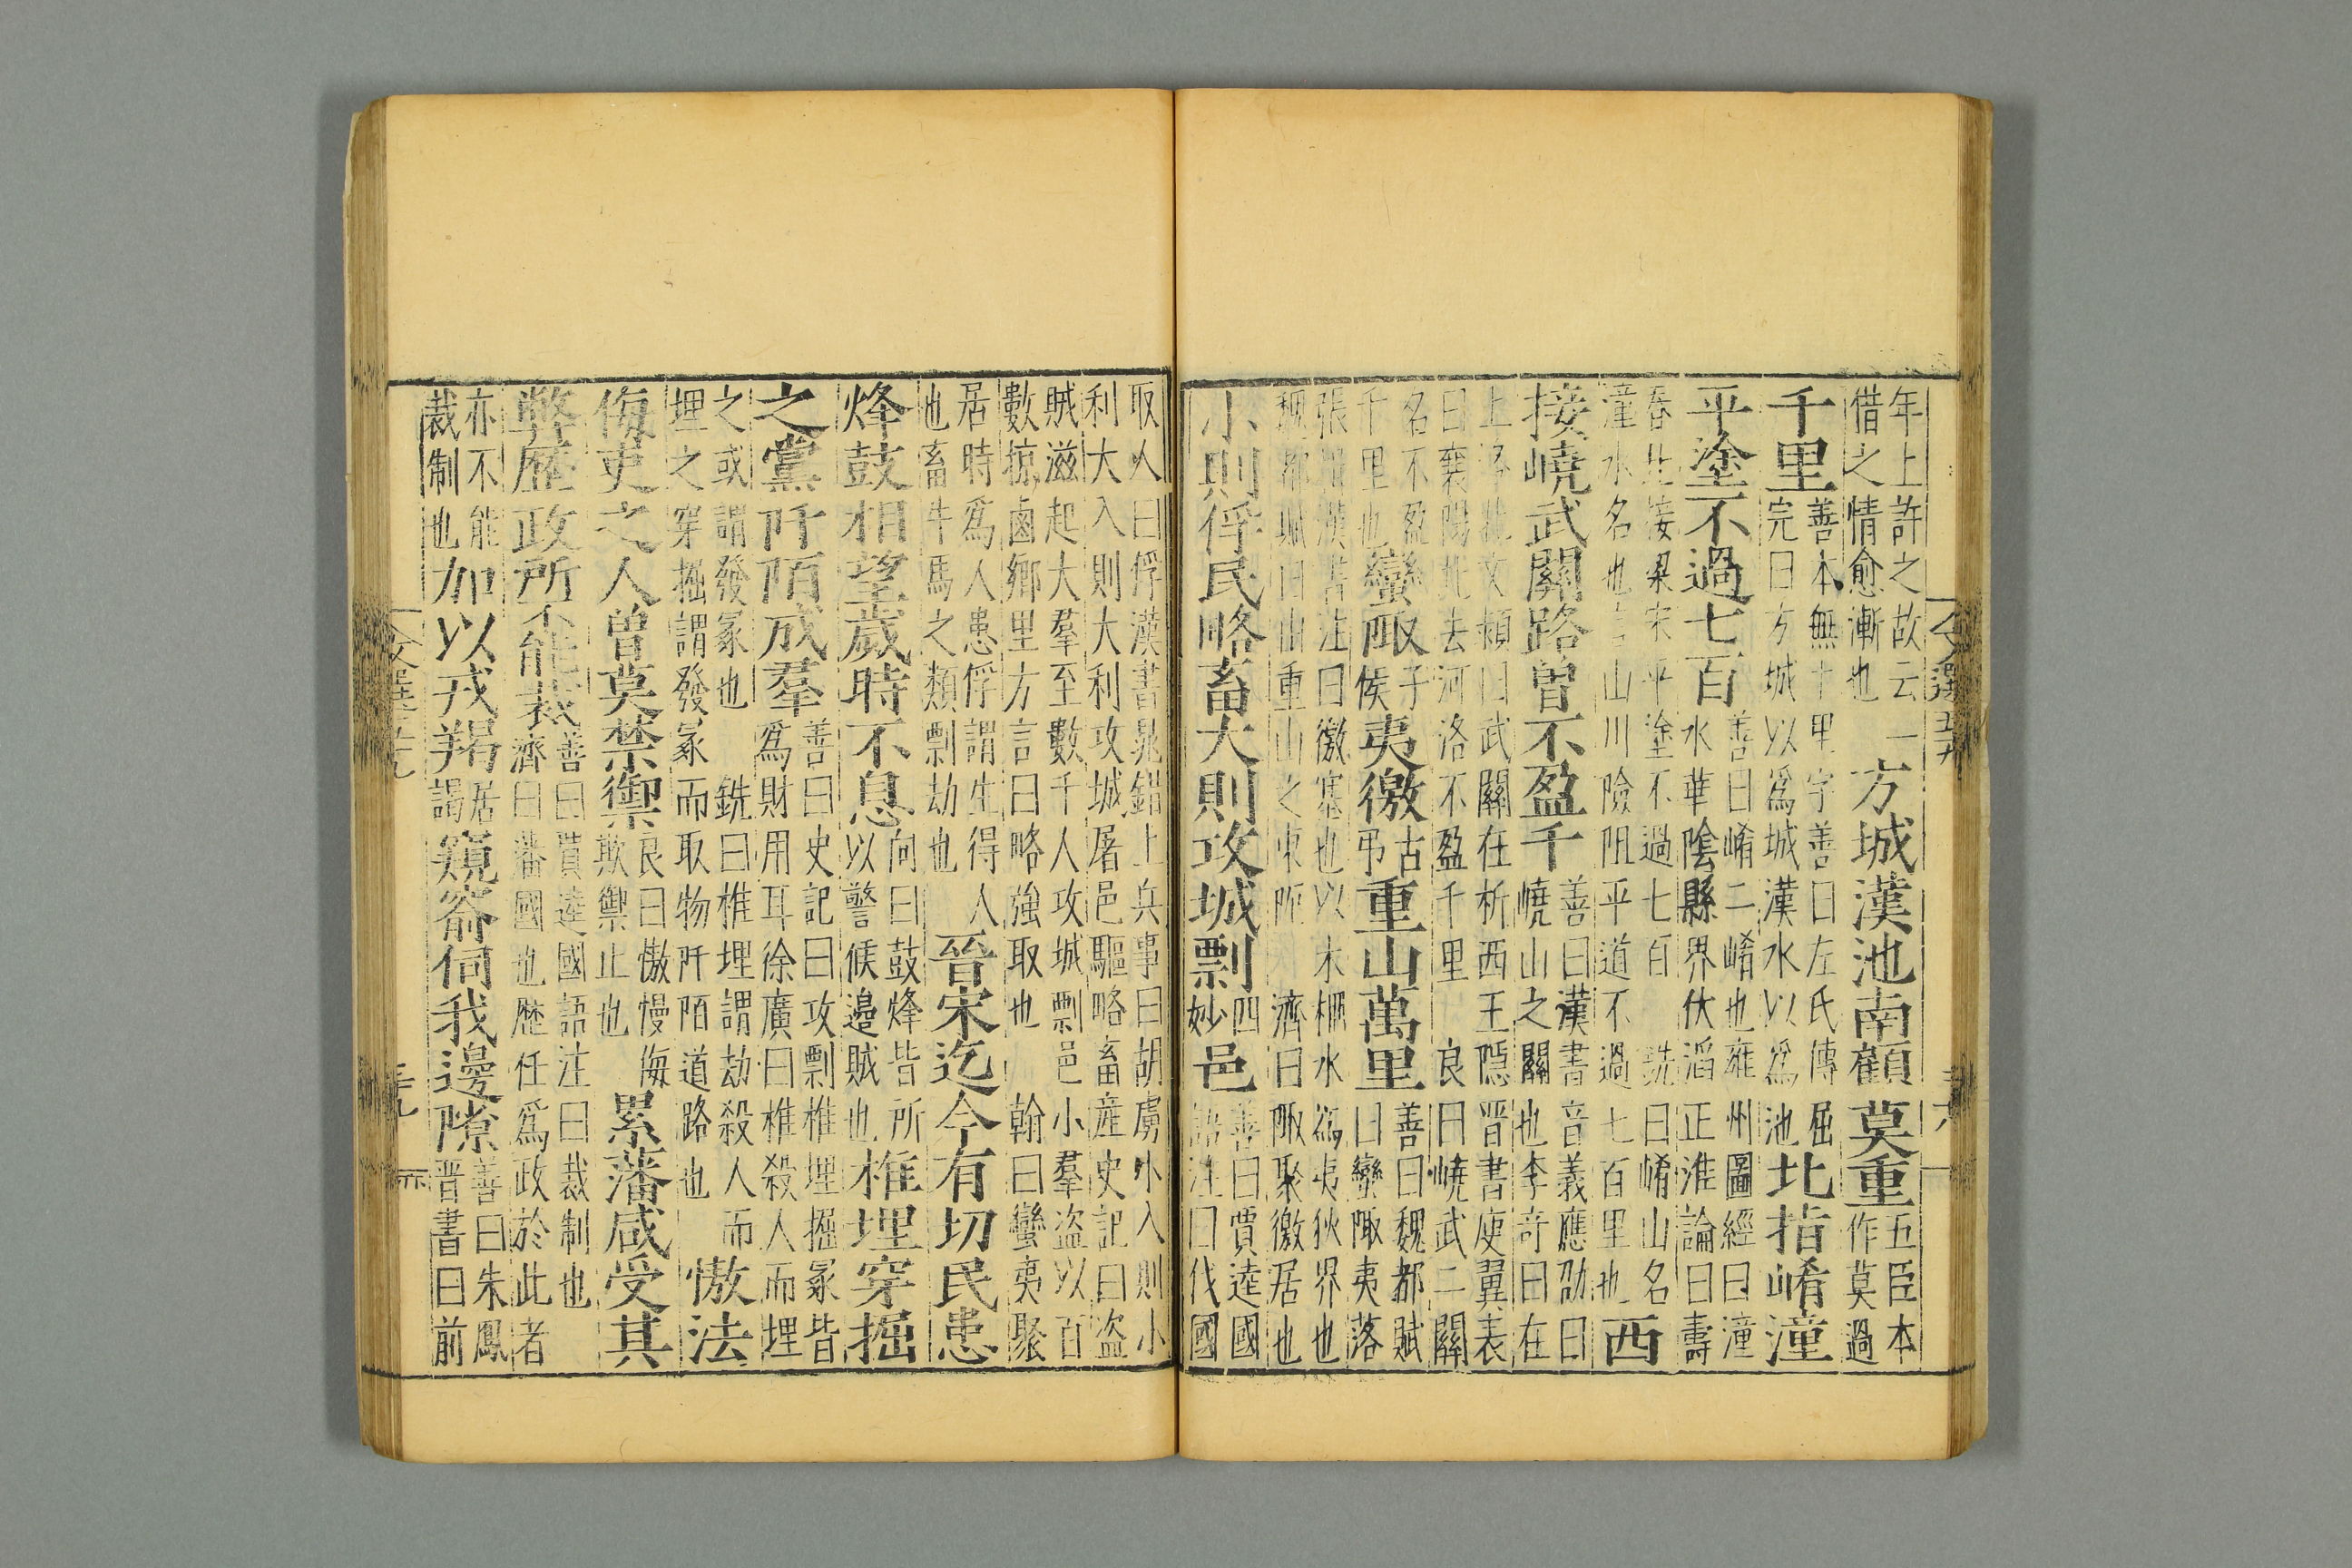 年上許之故云一借之情愈漸也方城漢池南顧莫重五臣本作莫過
千里善本無十里字善曰左氏傳屈完曰方城以爲城漢水以爲池北指崤潼
平塗不過七百善曰崤二崤也雍州圖經曰潼水華陰縣界伏滔正淮論曰壽
春北接梁宋平塗不過七百銑曰崤山名潼水名也言山川險阻平道不過七百里也西
接嶢武關路曾不盈千善曰漢書音義應劭曰嶢山之關也李奇曰在
上洛北文穎曰武關在析西王隱晋書庾翼表曰襄陽北去河洛不盈千里良曰嶢武二關
名不盈千里也蠻陬子侯夷徼古弔重山萬里善曰魏都賦曰蠻陬夷落
張揖漢書注曰徼塞也以木柵水爲夷狄界也魏都賦曰山重山之東阨濟曰陬聚徼居也
小則俘民略畜大則攻城剽四妙邑善曰賈逵國語注曰伐國
取人曰俘漢書晁錯上兵事曰胡虜小入則小利大入則大利攻城屠邑驅略畜産史記曰盗
賊滋起大羣至數千人攻城剽邑小羣盗以百數掠鹵鄉里方言曰略強取也翰曰蠻夷聚
居時爲人患俘謂生得人也畜牛馬之類剽劫也晉宋迄今有切民患
烽鼓相望歲時不息向曰鼓烽皆所以警候邉賊也椎埋穿掘
之黨阡陌成羣善曰史記曰攻剽椎埋掘冢皆爲財用耳徐廣曰椎殺人而埋
之或謂發冢也銑曰椎埋謂劫殺人而埋之穿掘謂發冢而取物阡陌道路也傲法
侮吏之人曽莫禁禦良曰傲慢侮欺禦止也累藩咸受其
弊歴政所不能裁善曰賈逵國語注曰裁制也濟曰藩國也歴任爲政於此者
亦不能裁制也加以戎羯居謁窺窬伺我邊隙善曰朱鳳晋書曰前
文選五十九
三十九